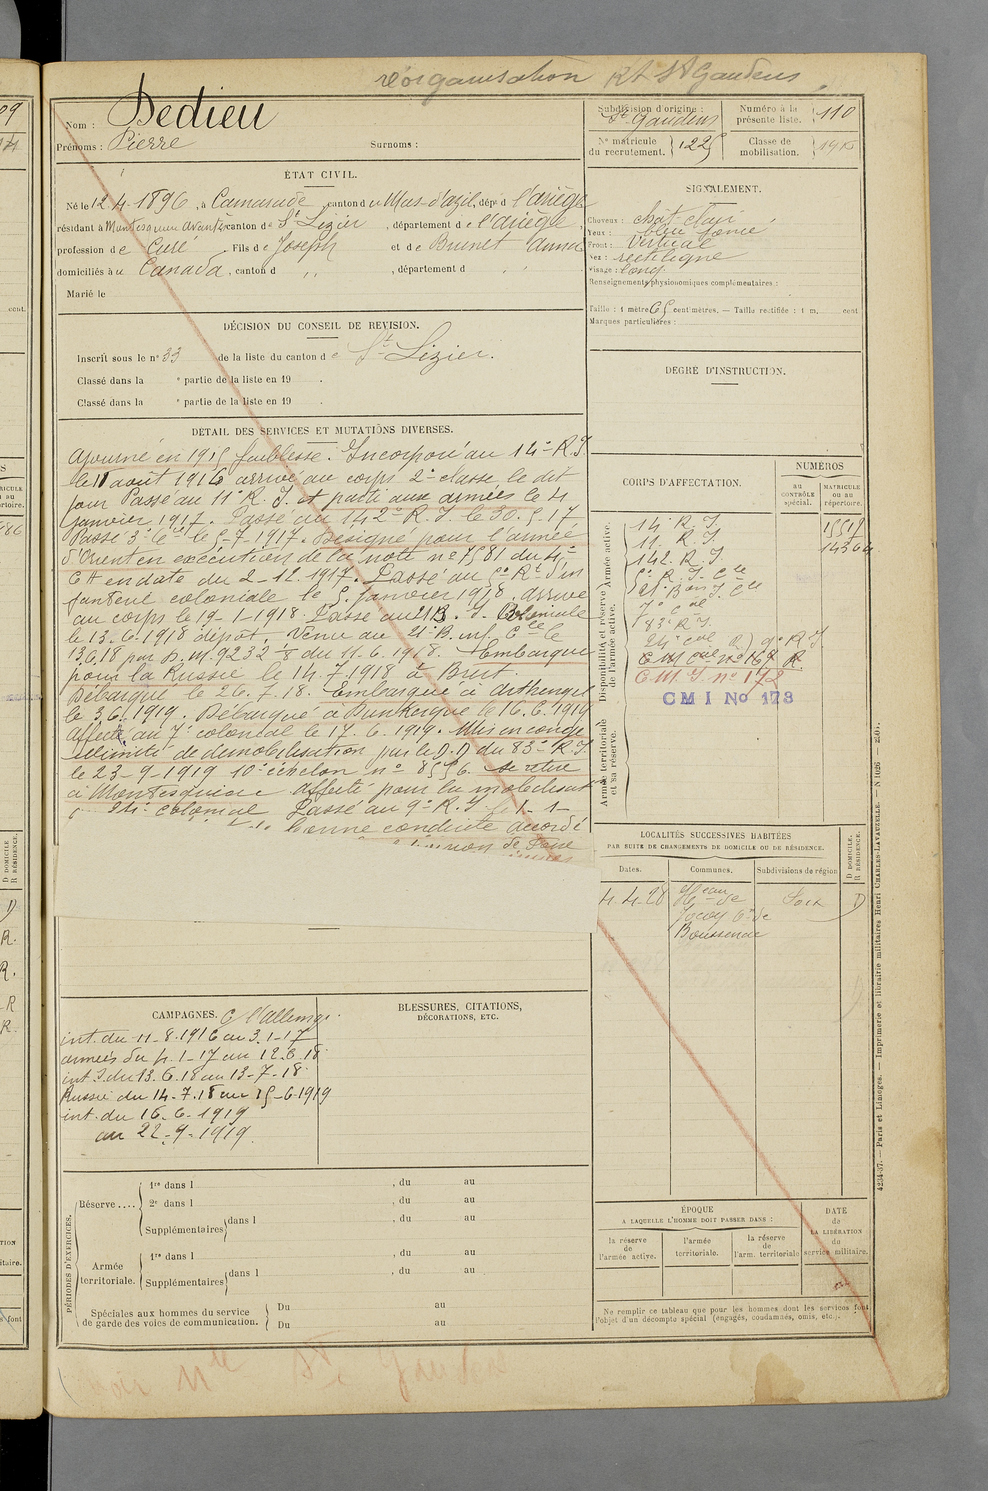 réorganisation Rt St Gaudens
Nom : Dedieu
Prénoms : Pierre Surnoms :
Subdivision d'origine : St Gaudens
Numéro à la présente liste. 110
No matricule du recrutement. 1225
Classe de mobilisation.
ÉTAT CIVIL.
Né le 12.4.1896, à Camarade, canton de Mas-d'azil, dépt d l'ariège
résidant à Montesquieu avantès canton de St Lizier, département de l'ariège,
profession de Curé. Fils de Joseph et de Brunet Anna
domiciliés au Canada, canton d ,, , département d ,,
Marié le
DÉCISION DU CONSEIL DE REVISION.
Inscrit sous le no 33 de la liste du canton de St Lizier.
Classé dans la e partie de la liste en 19 .
Classé dans la e partie de la liste en 19 .
SIGNALEMENT.
Cheveux : chât clair
Yeux : bleu foncé
Front : Vertical
Nez : rectiligne
Visage : long
Renseignements physionomiques complémentaires :
Taille : 1 mètre 65 centimètres. — Taille rectifiée : 1 m, cent
Marques particulières :
DEGRÉ D'INSTRUCTION.
DÉTAIL DES SERVICES ET MUTATIONS DIVERSES.
Ajourné en 1915 faiblesse. Incorporé au 14e R.I.
le 11 août 1916 arrivé au corps 2e classe le dit
jour Passé au 11e R.I. et parti aux armées le 4
Janvier 1917. Passé au 142e R.I. le 30.5.17
Passé 3e Cie le 5-7-1917. Désigné pour l'armée
d'Orient en exécution de la note no 7581 du 4e
CA en date du 2-12.1917. Passé au 5e Rt d'in
fanterie coloniale le 5 Janvier 1918. arrivé
au corps le 19-1-1918. Passé au 21 B. I. Coloniale
le 13.6.1918 dépôt. Venu au 21e B. inf. Cle le
13.6.18 par D.M. 9232 1/8 du 11.6.1918. Embarqué
pour la Russie le 14.7.1918 à Brest.
Débarqué le 26.7.18. Embarqué à Arkhangel
le 3.6.1919. Débarqué à Dunkerque le 16.6.1919
affecté au 7e colonial le 17.6.1919. Mis en congé
illimité de démobilisation par le D.D du 83e R.I.
le 23-9-1919 10e échelon no 8556. se retire
à Montesquieu Affecté pour la mobilisat
24e colonial Passé au 9e R.I le 1-1-
bonne conduite accordé
de Foix
CORPS D'AFFECTATION.
NUMÉROS
au CONTRÔLE spécial.
MATRICULE ou au répertoire.
Armée active.
Disponibilité et réserve de l'armée active.
Armée territoriale et sa réserve.
14e R.I. 15517
11e R.I. 14364
142e R.I.
5e R.I. Cle
21e Bon I. Cle
7e cal
83e R.I.
24e cal R) 9e R I
C.M. cal no 167 R.
C.M.I. no 178
CMI No 173
LOCALITÉS SUCCESSIVES HABITÉES
PAR SUITE DE CHANGEMENTS DE DOMICILE OU DE RÉSIDENCE.
Dates.
Communes.
Subdivisions de région
D DOMICILE.
R RÉSIDENCE.
4.4-28 Foix D
Boussenac
CAMPAGNES. C l'Allemge.
int. du 11-8.1916 au 3.1-17
armées du 4.1-17 au 12.6.18
int I du 13.6.18 au 13-7-18.
Russie du 14.7.18 au 15-6-1919
int. du 16.6.1919
au 22-9-1919.
BLESSURES, CITATIONS,
DÉCORATIONS, ETC.
PÉRIODES D'EXERCICES.
Réserve ....
1re dans l , du au
2e dans l , du au
Supplémentaires dans l , du au
Armée territoriale.
1re dans l , du au
Supplémentaires dans l , du au
Spéciales aux hommes du service
de garde des voies de communication.
Du au
Du au
ÉPOQUE
A LAQUELLE L'HOMME DOIT PASSER DANS :
la réserve de l'armée active.
l'armée territoriale.
la réserve de l'arm. territoriale
DATE de LA LIBÉRATION du service militaire.
Ne remplir ce tableau que pour les hommes dont les services font
l'objet d'un décompte spécial (engagés, condamnés, omis, etc.).
4234-37. — Paris et Limoges. — Imprimerie et librairie militaires Henri CHARLES-LAVAUZELLE. —
voir Mle St Gaudens